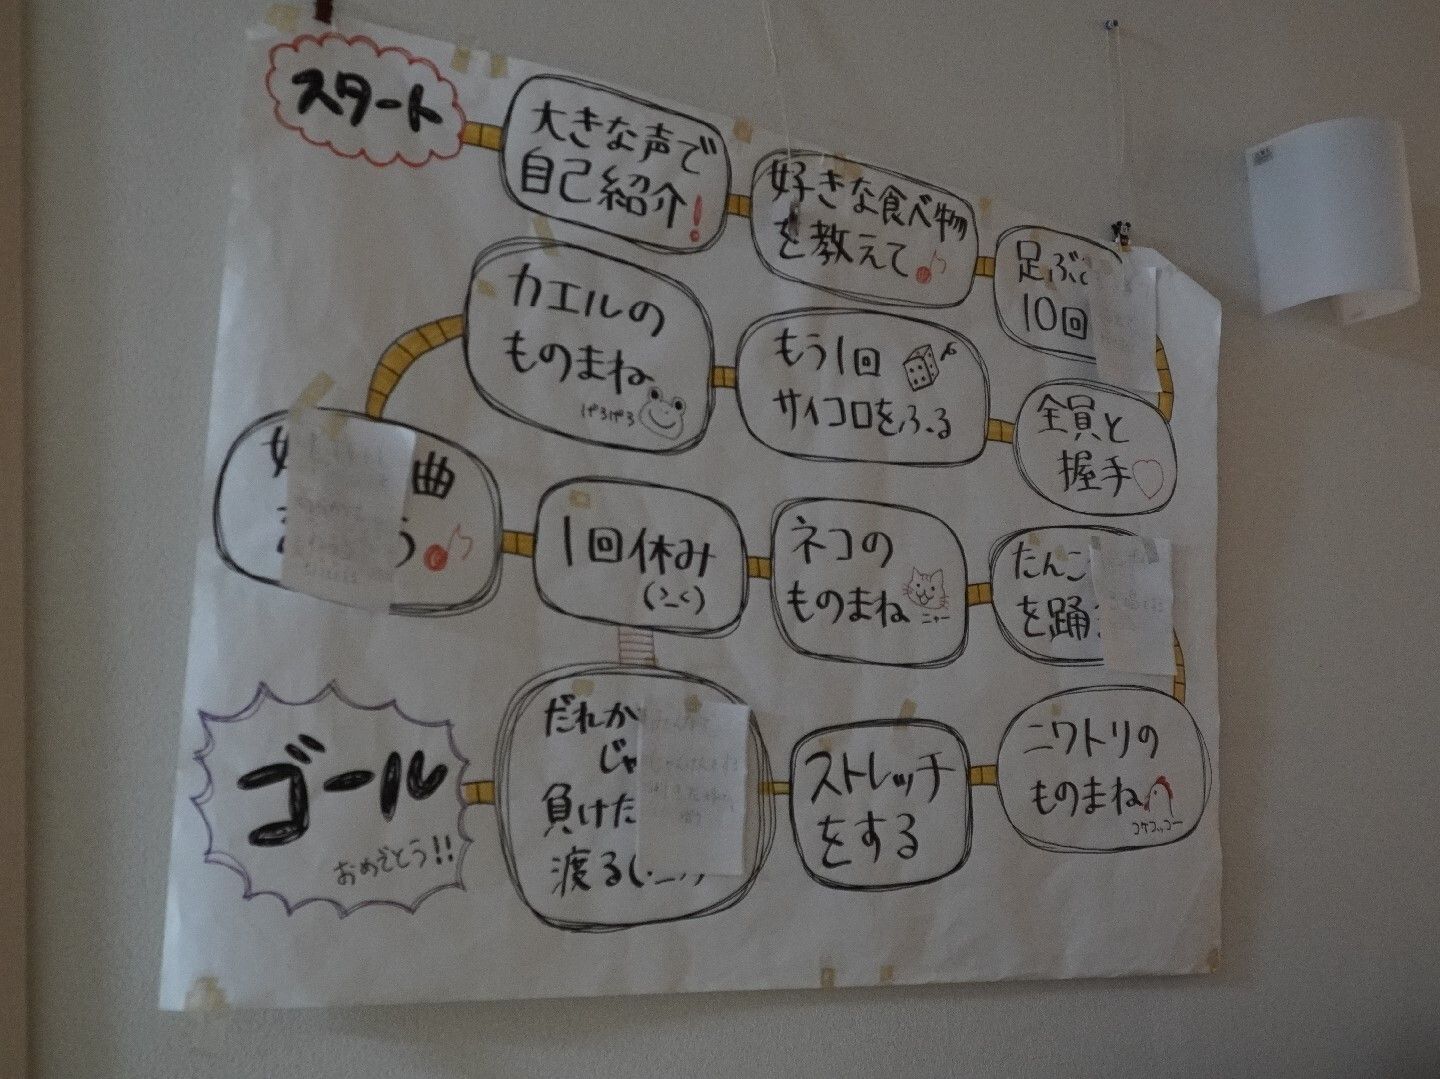 スタート
大きな声で
自己紹介!
好きな食べ物
を教えて
足ぶ
10回
全員と
握手
もう1回
サイコロをふる
カエルの
ものまね
曲
1回休み
ネコの
ものまね
ニャー
たんこ
を踊
ニワトリの
ものまね
コケコッコー
ストレッチ
をする
だれか
じゃ
負けた
渡る
ゴール
おめでとう!!